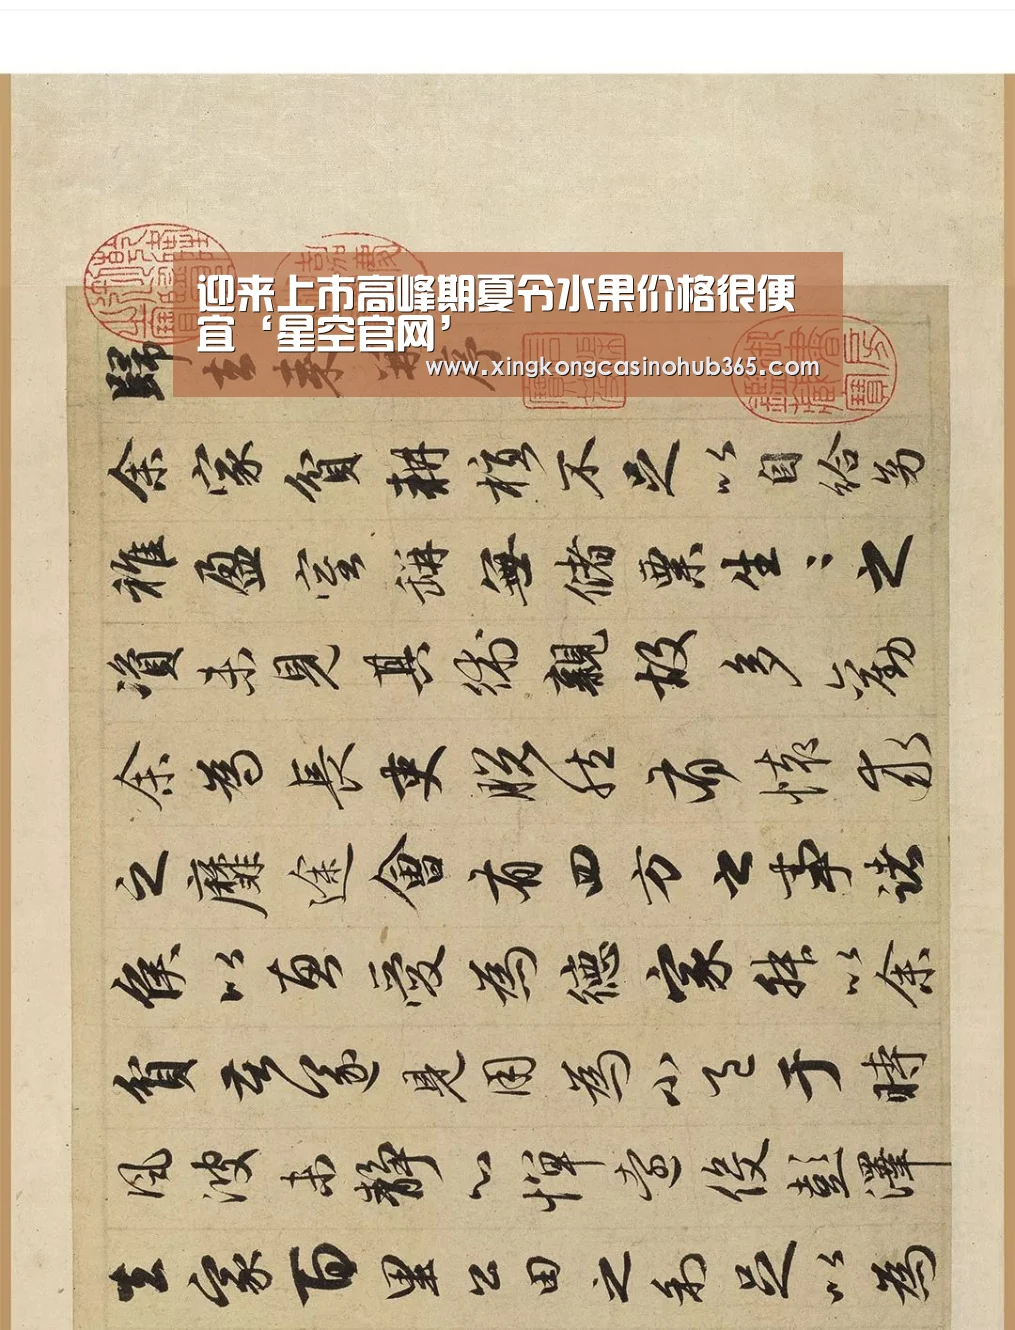 迎来上市高峰期夏令水果价格很便
宜‘星空官网’
www.xingkongcasinohub365.com
歸去来并序
余家貧耕植不足以自給幼
稚盈室缾無儲粟生〻之
資未見其術親故多勸
余為長吏脫然有懷求
之靡途會有四方之事諸
侯以惠愛為德家叔以余
貧苦遂見用為小邑于時
風波未靜心憚遠役彭澤
去家百里公田之利足以為